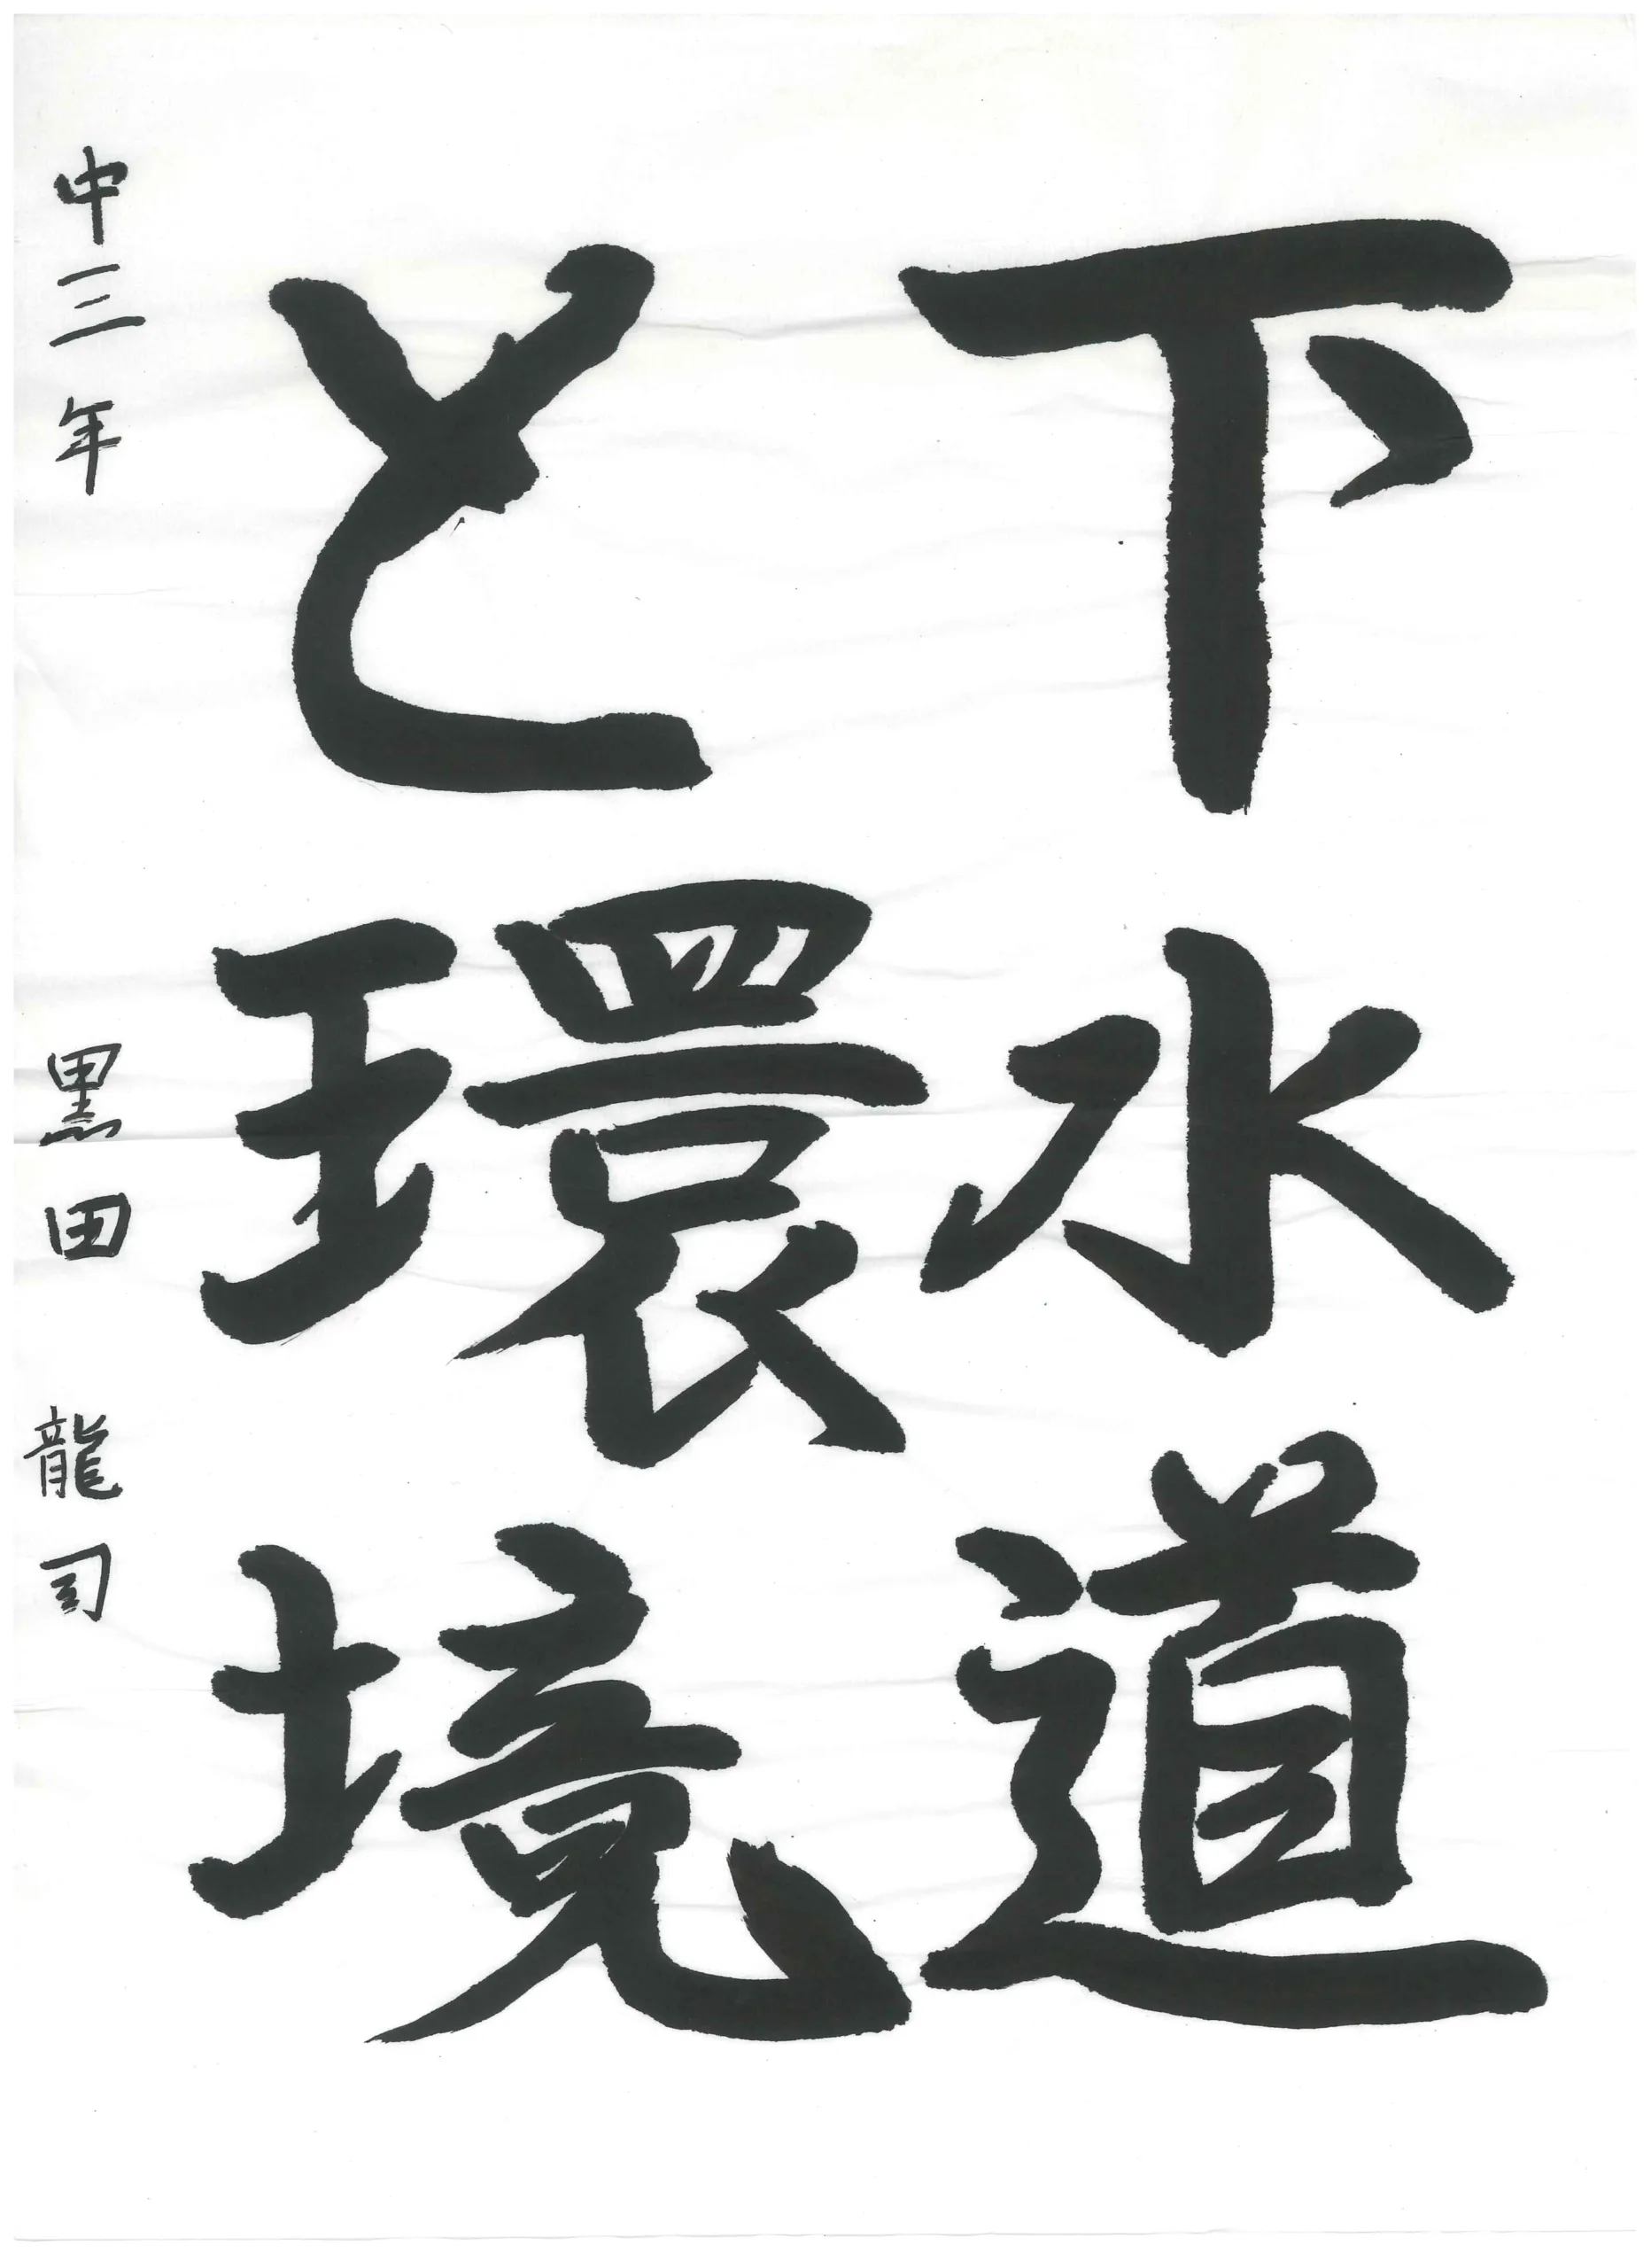 下水道
と環境
中三年 黒田 龍司